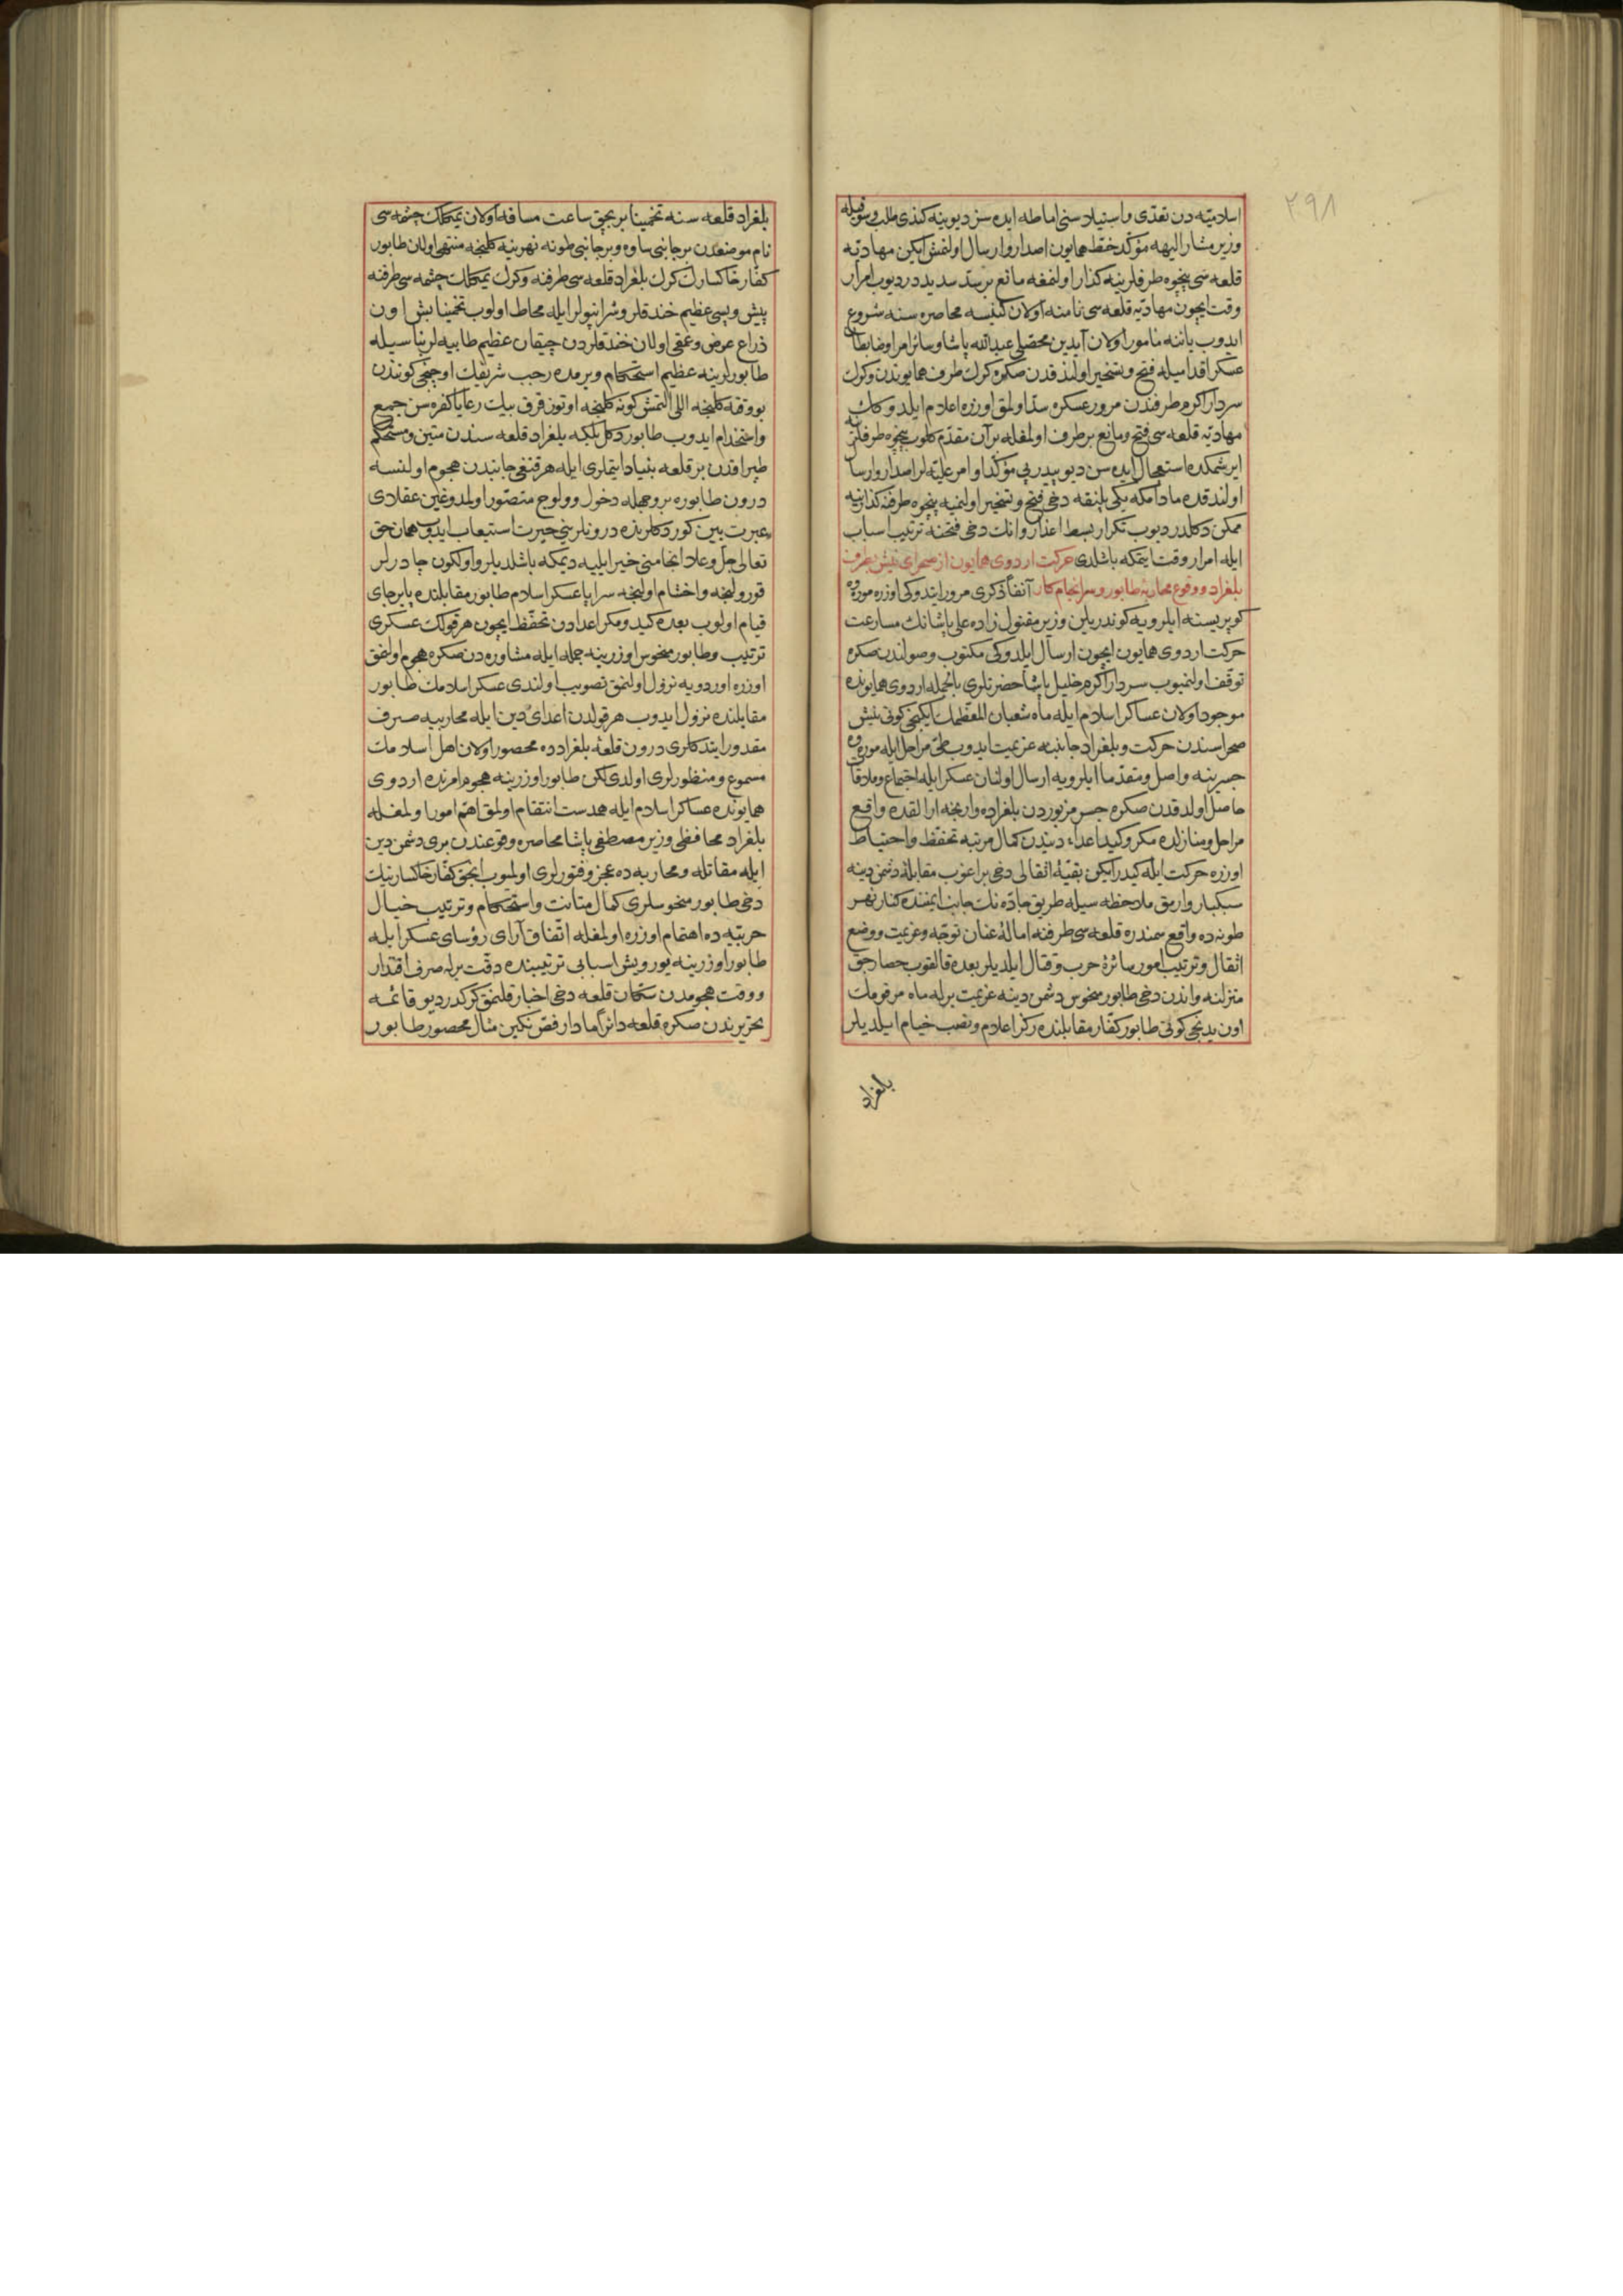 ۲۹۸
اسلامیّه دن تعدّی و استیلاسنی اماطه ایده سز دیو ینه کندی طلب و سوقیله
وزیر مشار الیهه مؤکّد خطّ همایون اصدار و ارسال اولنمش ایکن مهادیّه
قلعه سی پنچوه طرفلرینه کذار اولنمغه مانع بر سدّ سدیددر دیوب امرار
وقت ایچون مهادیّه قلعه سی نامنه اولان کنیسه محاصره سنه شروع
ایدوب یاننه مأمور اولان آیدین محصّلی عبدالله پاشا و سائر امرا و ضابطان
عسکر اقدامیله فتح و تسخیر اولندقدن صکره کرك طرف همایوندن و کرك
سردار اکرم طرفندن مرور عسکره سدّ اولمق اوزره اعلام ایلدوکك
مهادیّه قلعه سی فتح و مانع برطرف اولمغله بر آن مقدّم کلوب پنچوه طرفلرینه
ایرشمکده استعجال ایده سن دیو پیدرپی مؤکّد اوامر علیّه لر اصدار و ارسال
اولندقده مادامکه یکی پلنقه دخی فتح و تسخیر اولنمیه پنچوه طرفنه کذار ینه
ممکن دکلدر دیوب تکرار بسط اعذار و انك دخی فتحنه ترتیب اسباب
ایله امرار وقت ایتمکه باشلدی حرکت اردوی همایون از صحرای نیش بطرف
بلغراد و وقوع محاربۀ طابور و سرانجام کار آنفاً ذکری مرور ایتدوکی اوزره موره وه
کوپریسنه ایلرویه کوندریلن وزیر مقتول زاده علی پاشانك مسارعت
حرکت اردوی همایون ایچون ارسال ایلدوکی مکتوب وصولندن صکره
توقّف اولنمیوب سردار اکرم خلیل پاشا حضرتلری بالجمله اردوی همایونده
موجود اولان عساکر اسلام ایله ماه شعبان المعظّمك ایکنجی کونی نیش
صحراسندن حرکت و بلغراد جانبنه عزیمت ایدوب طیّ مراحل ایله موره وه
جسرینه واصل و مقدّما ایلرویه ارسال اولنان عسکر ایله اجتماع و ملاقا
حاصل اولدقدن صکره جسر مزبوردن بلغراده وارنجه ارالقده واقع
مراحل و منازلده مکر و کید اعداء دیندن کمال مرتبه تحفّظ و احتیاط
اوزره حرکت ایله کیدرایکن بقیّۀ اثقالی دخی براغوب مقابلۀ دشمن دینه
سبکبار وارمق ملاحظه سیله طریق جادّه نك جانب ایمننده کنار نهر
طونه ده واقع سمندره قلعه سی طرفنه امالۀ عنان توجّه و عزیمت و وضع
اثقال و ترتیب امور سائرۀ حرب و قتال ایلدیلر بعده قالقوب حصارجق
منزلنه و اندن دخی طابور منحوس دشمن دینه عزیمت برله ماه مرقومك
اون یدنجی کونی طابور کفّار مقابلنده رکز اعلام و نصب خیام ایلدیلر
بلغراد
بلغراد قلعه سنه تخمیناً بر بچق ساعت مسافه اولان یمکلك چشمه سی
نام موضعدن بر جانبی ساوه و بر جانبی طونه نهرینه کلنجه منتهی اولان طابور
کفّار خاکسارك کرك بلغراد قلعه سی طرفنه و کرك یمکلك چشمه سی طرفنه
پیش و پسی عظیم خندقلر و شرانپولر ایله محاط اولوب تخمیناً بش اون
ذراع عرض و عمقی اولان خندقلردن چیقان عظیم طابیه لر بناسیله
طابورلرینه عظیم استحکام ویرمده رجب شریفك اوچنجی کونندن
بو وقته کلنجه اللی التمش کونه کلنجه اوتوز قرق بیك رعایا کفره سن جمع
و استخدام ایدوب طابور دکل بلکه بلغراد قلعه سندن متین و مستحکم
طپراقدن بر قلعه بنیاد ایتملری ایله هر قنغی جانبدن هجوم اولنسه
درون طابوره بر وجهله دخول و ولوج متصوّر اولمدوغین عقلادی
عبرت بین کوردکلرنده درونلرینی حیرت استیعاب ایدوب همان حق
تعالی جلّ و علا انجامنی خیر ایلیه دیمکه باشلدیلر و اولکون چادرلر
قورولنجه و اختتام اولنجه سراپا عسکر اسلام طابور مقابلنده پابرجای
قیام اولوب بعده کید و مکر اعدادن تحفّظ ایچون هر قولك عسکری
ترتیب و طابور منحوس اوزرینه جمله ایله مشاوره دن صکره هجوم اولنمق
اوزره اوردویه نزول اولنمق تصویب اولندی عسکر اسلامك طابور
مقابلنده نزول ایدوب هر قولدن اعدای دین ایله محاربیه صرف
مقدور ایتدکلری درون قلعۀ بلغرادده محصور اولان اهل اسلامك
مسموع و منظورلری اولدی لکن طابور اوزرینه هجوم امرنده اردوی
همایونده عساکر اسلام ایله همدست انتقام اولمق اهمّ امور اولمغله
بلغراد محافظی وزیر مصطفی پاشا محاصره وقوعندن بری دشمن دین
ایله مقاتله و محاربه ده عجز و فتورلری اولمیوب انجق کفّار خاکسارینك
دخی طابور منحوسلری کمال متانت و استحکام و ترتیب خیال
حربیّه ده اهتمام اوزره اولمغله اتّفاق آرای رؤسای عسکر ایله
طابور اوزرینه یورویش اسبابی ترتیبنده دقّت برله صرف اقتدار
و وقت هجومدن سکّان قلعه دخی اخبار قلنمق کرکدر دیو قائمه
تحریرندن صکره قلعه دائراً مادار فصّ نکین مثال محصور طابور